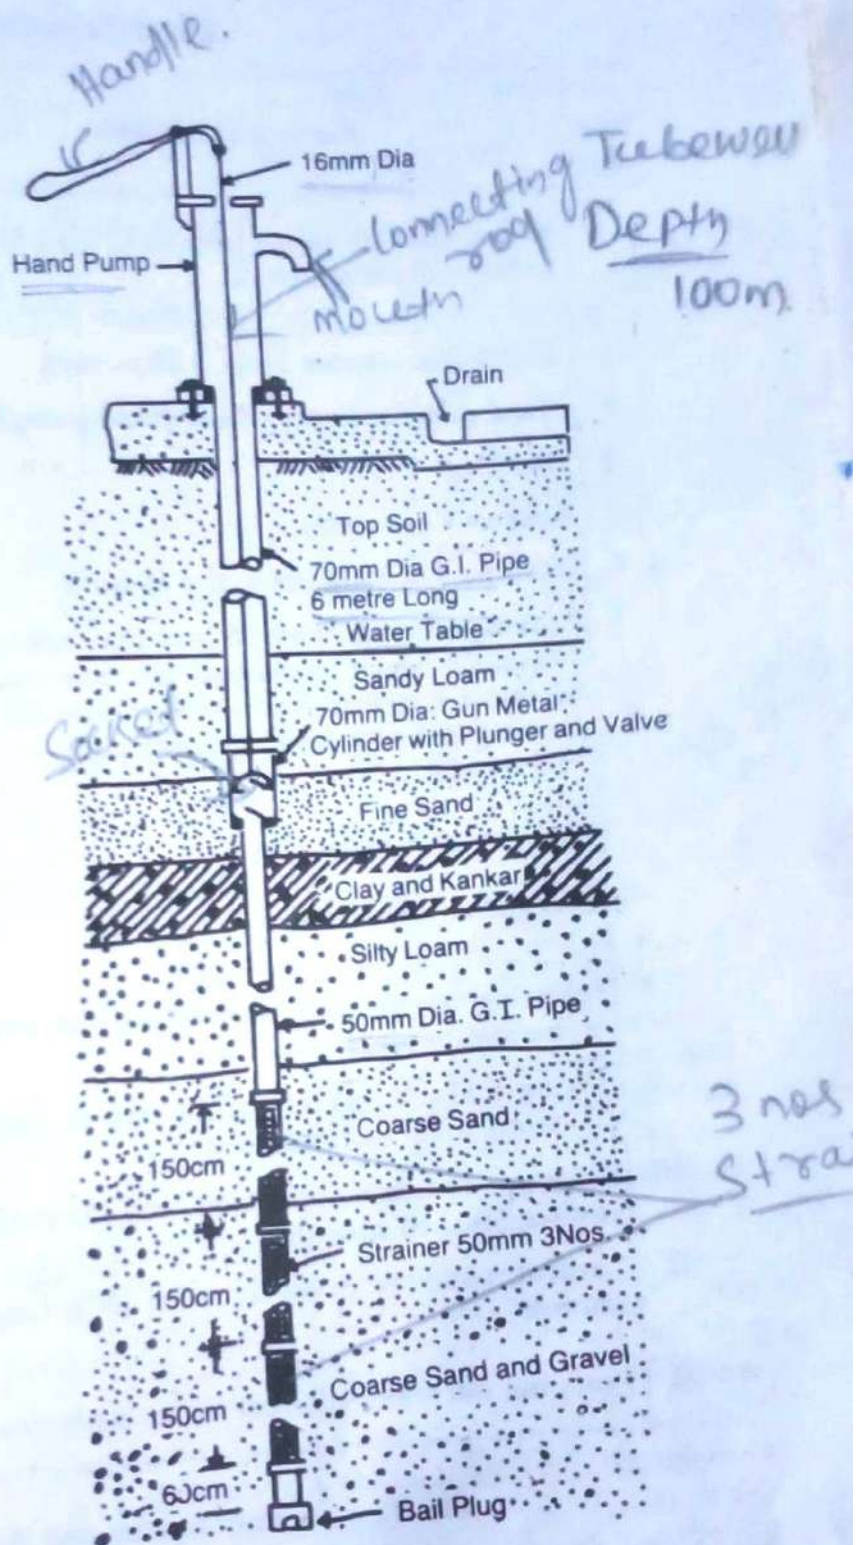 Handle.
16mm Dia
Tubewell
Connecting
rod
Depth
100m
Hand Pump
mouth
Drain
Top Soil
70mm Dia G.I. Pipe
6 metre Long
Water Table
Sandy Loam
Socket
70mm Dia: Gun Metal
Cylinder with Plunger and Valve
Fine Sand
Clay and Kankar
Silty Loam
50mm Dia. G.I. Pipe
Coarse Sand
3 nos
150cm
Strainer 50mm 3Nos
150cm
Coarse Sand and Gravel
150cm
60cm
Bail Plug